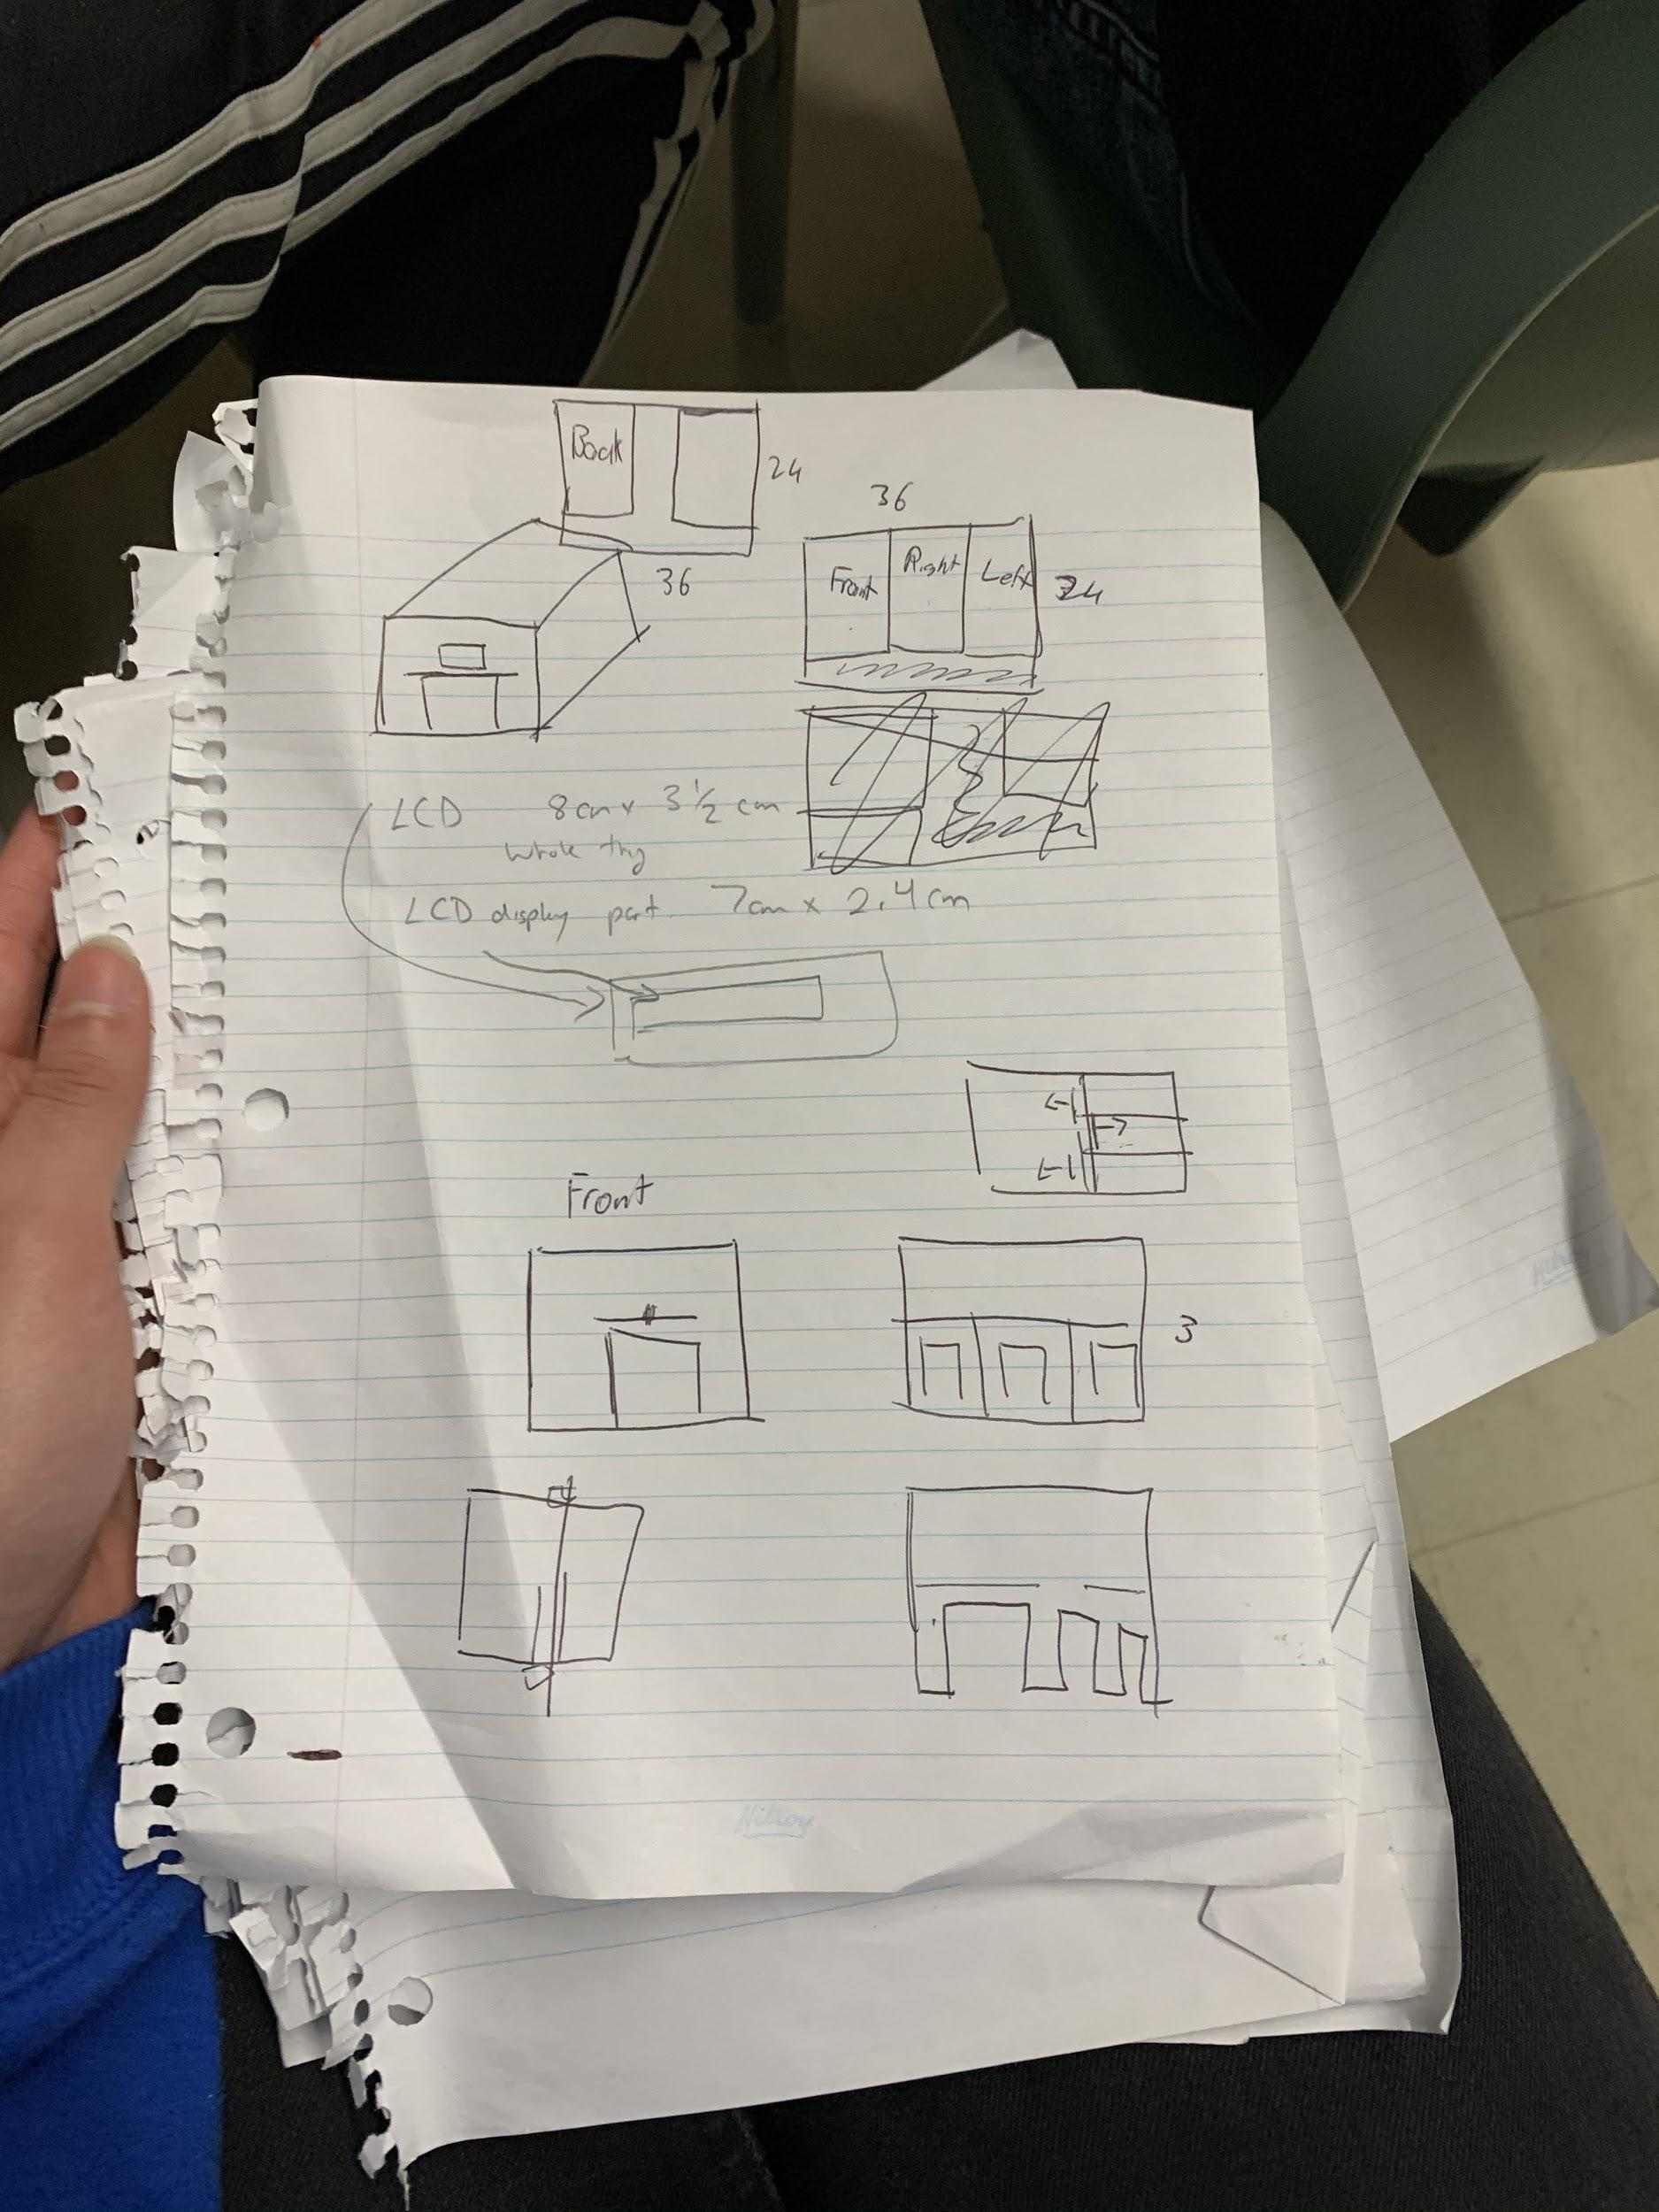 Back
24
36
36
Front Right Left
24
LCD 8cm x 3 1/2 cm
whole
LCD display part. 7cm x 2.4cm
Front
3
Hilroy